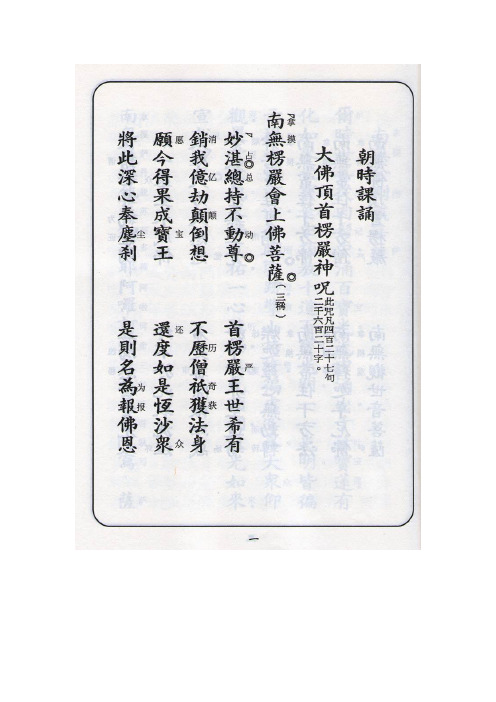 朝時課誦
大佛頂首楞嚴神呪此咒凡四百二十七句二千六百二十字。
南無楞嚴會上佛菩薩(三稱)
拿摸
妙湛總持不動尊 首楞嚴王世希有
占总动严
銷我億劫顛倒想 不歷僧祇獲法身
消亿颠历奇获
願今得果成寶王 還度如是恆沙眾
愿宝还众
將此深心奉塵刹 是則名為報佛恩
尘为报
一